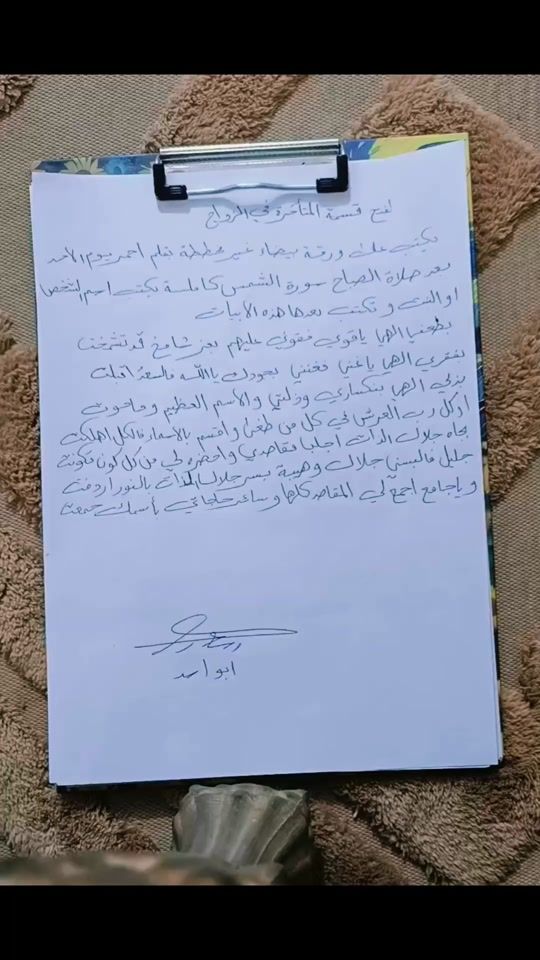 لفتح قسمة المتأخرة في الزواج
يكتب على ورقة بيضاء غير مخططة بقلم احمر يوم الاحد
بعد صلاة الصباح سورة الشمس كاملة يكتب اسم الشخص
او البنت وتكتب بعدها هذه الأبيات
الهي ياقوي فقوني عليهم بعز شامخ قد تشمخت
بفقري الهي ياغني فغنني بجودك يا الله فالسعد اقبلت
بذلي الهي بنكساري وذلتي والأسم العظيم وماحوت
رب العرش في كل من طغى واقسم بالأسماء فالكل اهلكت
بجاه جلال الذات اجلبا مقاصدي لي من كل كون تكونت
جليل فالبسني جلال وهيبة بسر جلال الذات بالنور اردفت
وياجامع اجمع لي المقاصد كلها وسائر حاجاتي بأسمك جمعت
ابو احمد